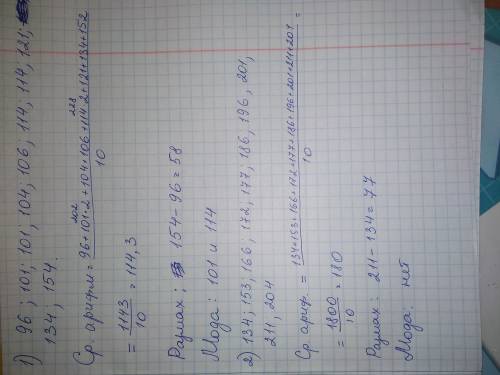 1) 96; 101; 101, 104, 106, 114; 114, 121;
134, 154.
202 228
Ср. арифм = 96+101·2+104+106+114·2+121+134+152
10
= 1143/10 = 114,3
Размах: 154-96=58
Мода: 101 и 114
2) 134; 153, 166; 172, 177, 186, 196, 201,
211, 204
Ср. ариф. = 134+153+166+172+177+186+196+201+211+204 =
10
= 1800/10 = 180
Размах: 211-134=77
Мода. нет